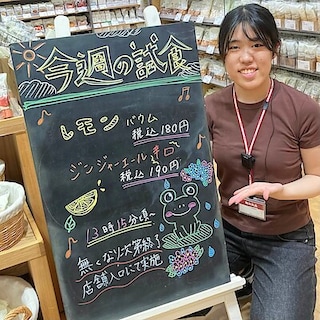 今週の試食
レモン バウム
税込 180円
ジンジャーエール 辛口
税込 190円
13時15分頃~
無くなり次第終了
店舗入口にて実施